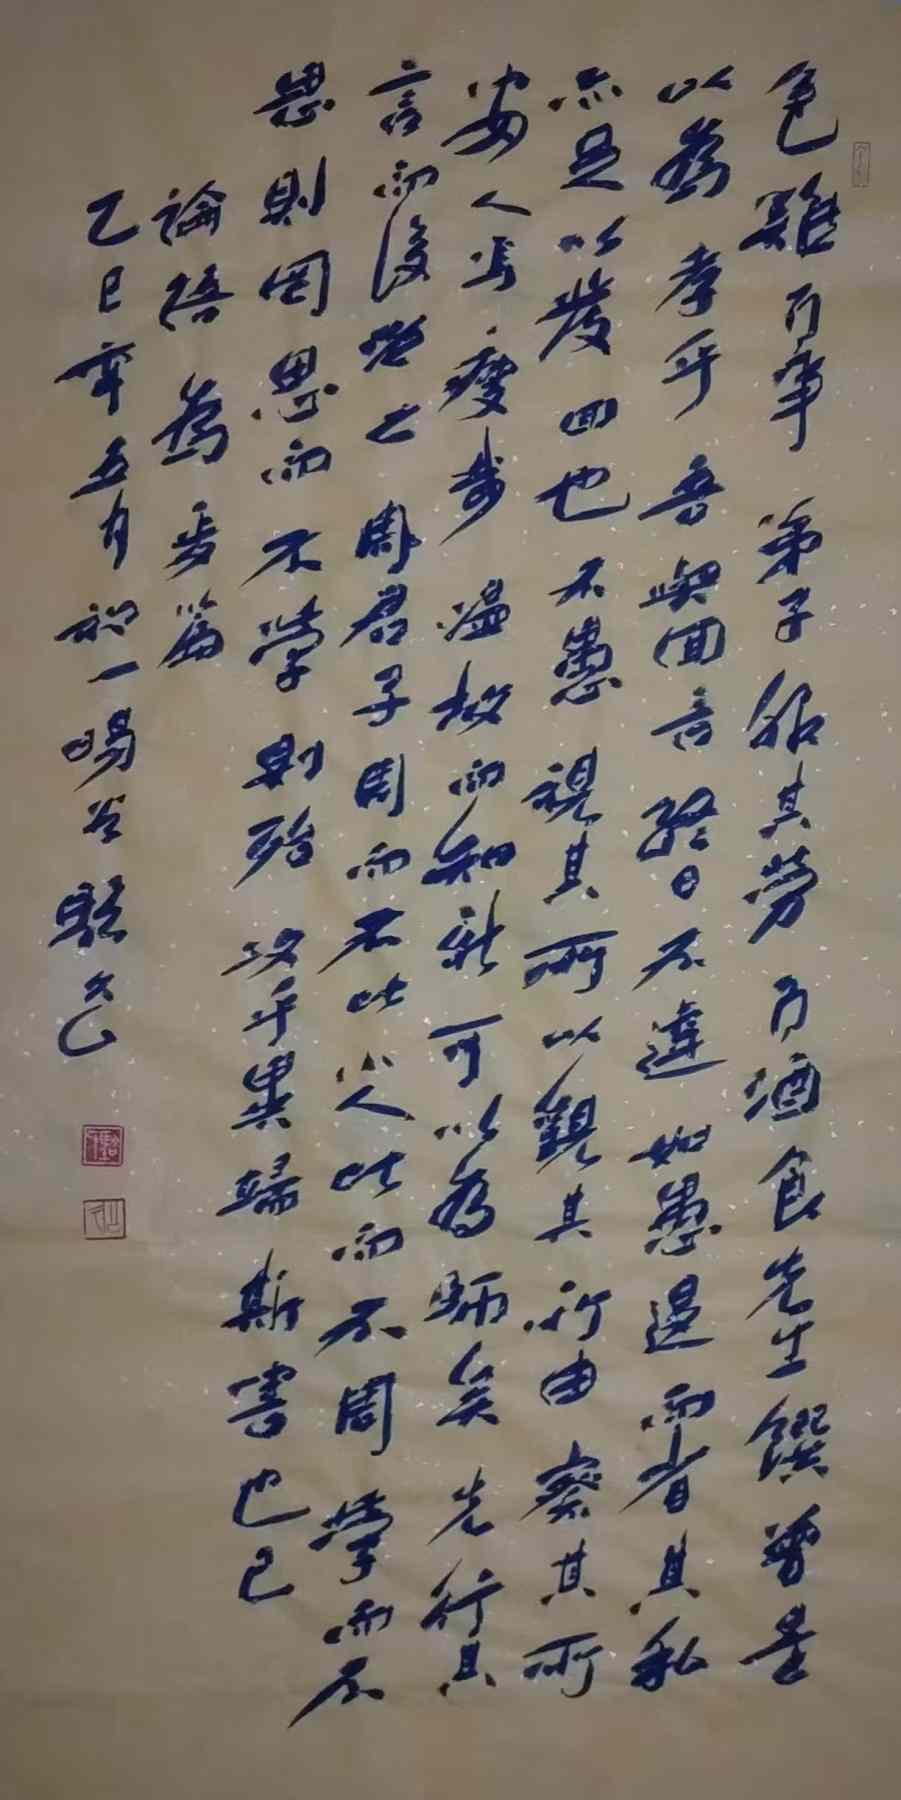 色難有事弟子服其勞有酒食先生饌曾是
以為孝乎吾與回言終日不違如愚退而省其私
亦足以發回也不愚視其所以觀其所由察其所
安人焉廋哉溫故而知新可以為師矣先行其
言而後從之周君子周而不比小人比而不周學而不
思則罔思而不學則殆攻乎異端斯害也已
論語為政篇
乙巳年五月初一暘谷